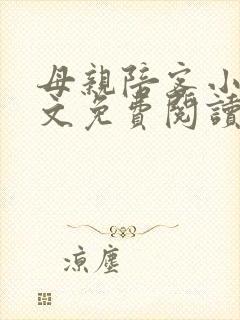 母親陪客小
文免費閱讀
涼塵